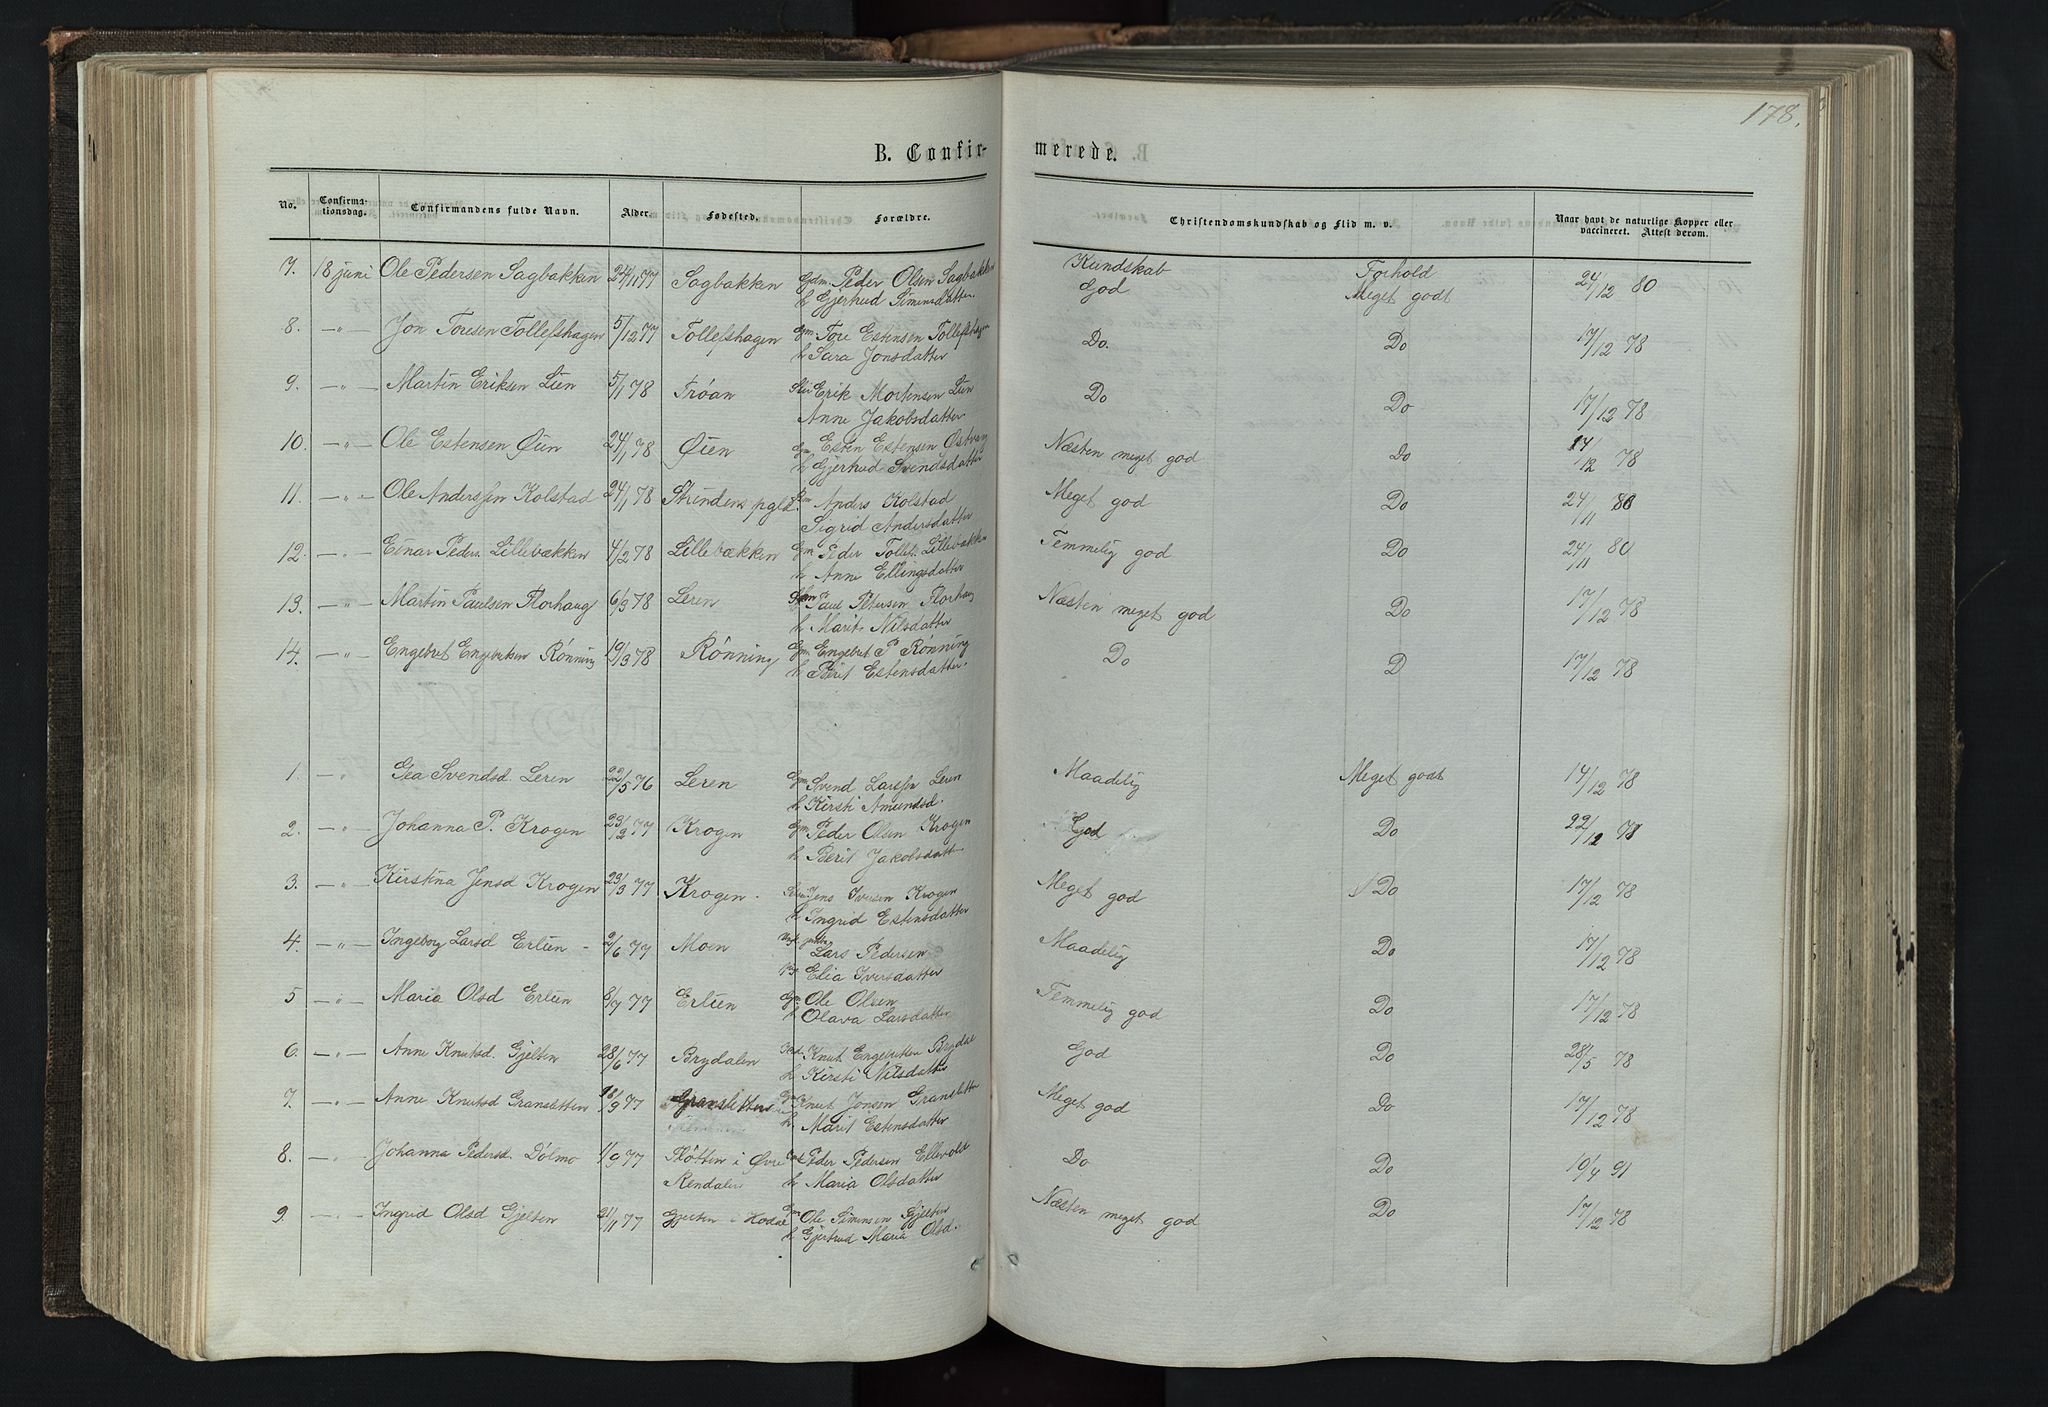 178.
B. Confirmerede.
No. Confirmationsdag. Confirmandens fulde Navn. Alder. Fødested. Forældre. Christendomskundskab og Flid m. v. Naar havt de naturlige Kopper eller vaccineret. Attest derom.
Kundskab Forhold
7. 18 juni Ole Pedersen Sagbakken 24/11 77 Sagbakken Gdm. Peder Olsen Sagbakken God Meget godt 24/12 80
h Gjertrud Simensdatter.
8. -"- Jon Toresen Tollefshagen 5/12 77 Tollefshagen Gm Tore Estensen Tollefshagen Do. Do 17/12 78
h Sara Jonsdatter
9. -"- Martin Eriksen Lien 5/1 78 Trøan Erik Mortensen Lien Do Do 17/12 78
Anne Jakobsdatter
10. -"- Ole Estensen Øien 24/1 78 Øien Gm Esten Estensen Østvang Næsten meget god Do 14/12 78
h Gjertrud Svendsdatter
11. -"- Ole Anderssen Kolstad 24/1 78 pgld. Anders Kolstad Meget god Do 24/11 80
Sigrid Andersdatter
12. -"- Einar Peders. Lillebækken 4/2 78 Lillebækken Gm Peder Tollefs. Lillebækken Temmelig god Do 24/11 80
h Anne Ellingsdatter
13. -"- Martin Paulsen Florhaug 6/3 78 Leren Paul Petersen Florhaug Næsten meget god Do 17/12 78
h Marit Nilsdatter
14. -"- Engebret Engebretsen Rønning 19/3 78 Rønning Gm. Engebret P. Rønning Do D 17/12 78
h Berit Estensdatter.
1. -"- Gea Svendsd. Leren 22/5 76 Leren Gm Svend Larssen Leren Maadelig Meget godt 14/12 78
h Kirsti Amundsd.
2. -"- Johanna P. Krogen 23/2 77 Krogen Gm Peder Olsen Krogen God Do 22/12 78
h Berit Jakobsdatter
3. -"- Kirstina Jensd Krogen 23/3 77 Krogen. Jens Iversen Krogen Meget god Do 17/12 78
h Ingrid Estensdatter
4. -"- Ingeborg Larsd Erlien 2/6 77 Moen Lars Pedersen Maadelig Do 17/12 78
Elia Iversdatter
5 -"- Maria Olsd Erlien 8/7 77 Erlien Gm Ole Olsen Temmelig god Do 17/12 78
h Olava Larsdatter
6. -"- Anne Knutsd. Gjelten 28/6 77 Brydalen Knut Engebretsen God Do 28/5 78
h Kirsti Nilsdatter
7. -"- Anne Knutsd Gransletten 16/9 77 Gransletten Gm Knut Jonsen Gransletten Meget god Do 17/12 78
h. Marit Estensdatter
8. -"- Johanna Pedersd. Dølmo 11/9 77 Fløtten i Øvre Peder Pedersen Ellevold Do Do 10/4 91
Rendalen h Maria Olsdatter
9. -"- Ingrid Olsd Gjelten 21/11 77 Gjelten i Gm Ole Simensen Gjelten Næsten meget god Do 17/12 78
h Gjertrud Maria Olsd.